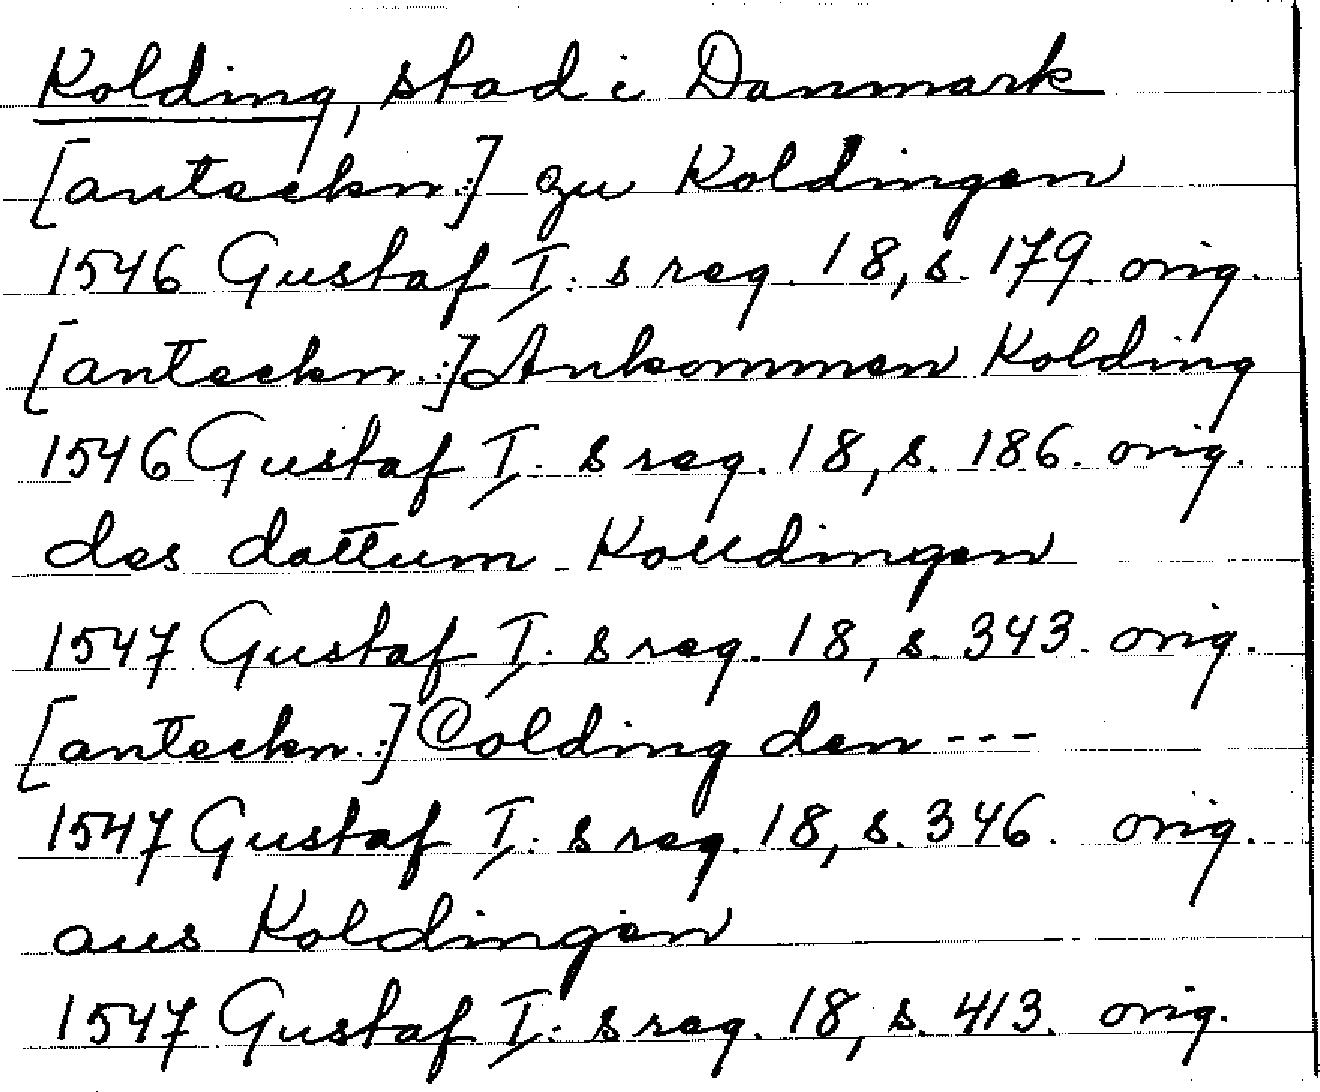 Kolding, stad i Danmark
[anteckn.:] zu Koldingen
1546 Gustaf I:s reg. 18, s. 179. orig.
[anteckn.:] Ankommen Kolding
1546 Gustaf I:s reg. 18, s. 186. orig.
des dattum Kolldingen
1547 Gustaf I:s reg. 18, s. 343. orig.
[anteckn.:] Colding den ---
1547 Gustaf I:s reg. 18, s. 346. orig.
aus Koldingen
1547 Gustaf I:s reg. 18, s. 413. orig.